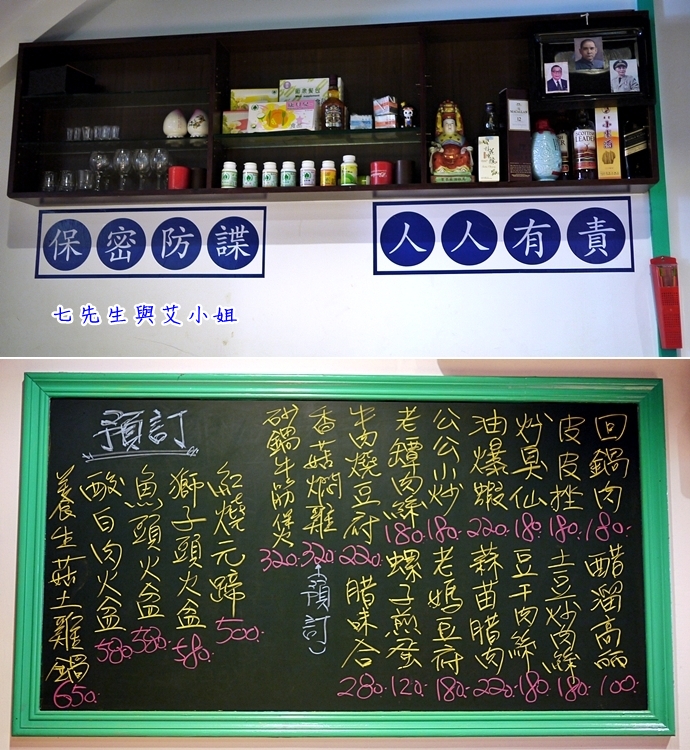 保密防諜
人人有責
七先生與艾小姐
回鍋肉 180.
皮皮挫 180.
炒臭仙 180.
油爆蝦 220.
公公小炒 180.
老鐔肉絲 180.
牛肉燒豆府 220.
香菇燜雞 320.
砂鍋牛筋煲 320.
醋溜高麗 100.
土豆炒肉絲 180.
豆干肉絲 180.
蒜苗腊肉 220.
老媽豆府 180.
螺子煎蛋 120.
腊味合 280.
預訂
預訂
紅燒元蹄 500.
獅子頭火盆 580.
魚頭火盆 580.
酸白肉火盆 580.
養生菇土雞鍋 650.